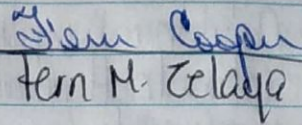 Fern Cooper
Fern M. Zelaya